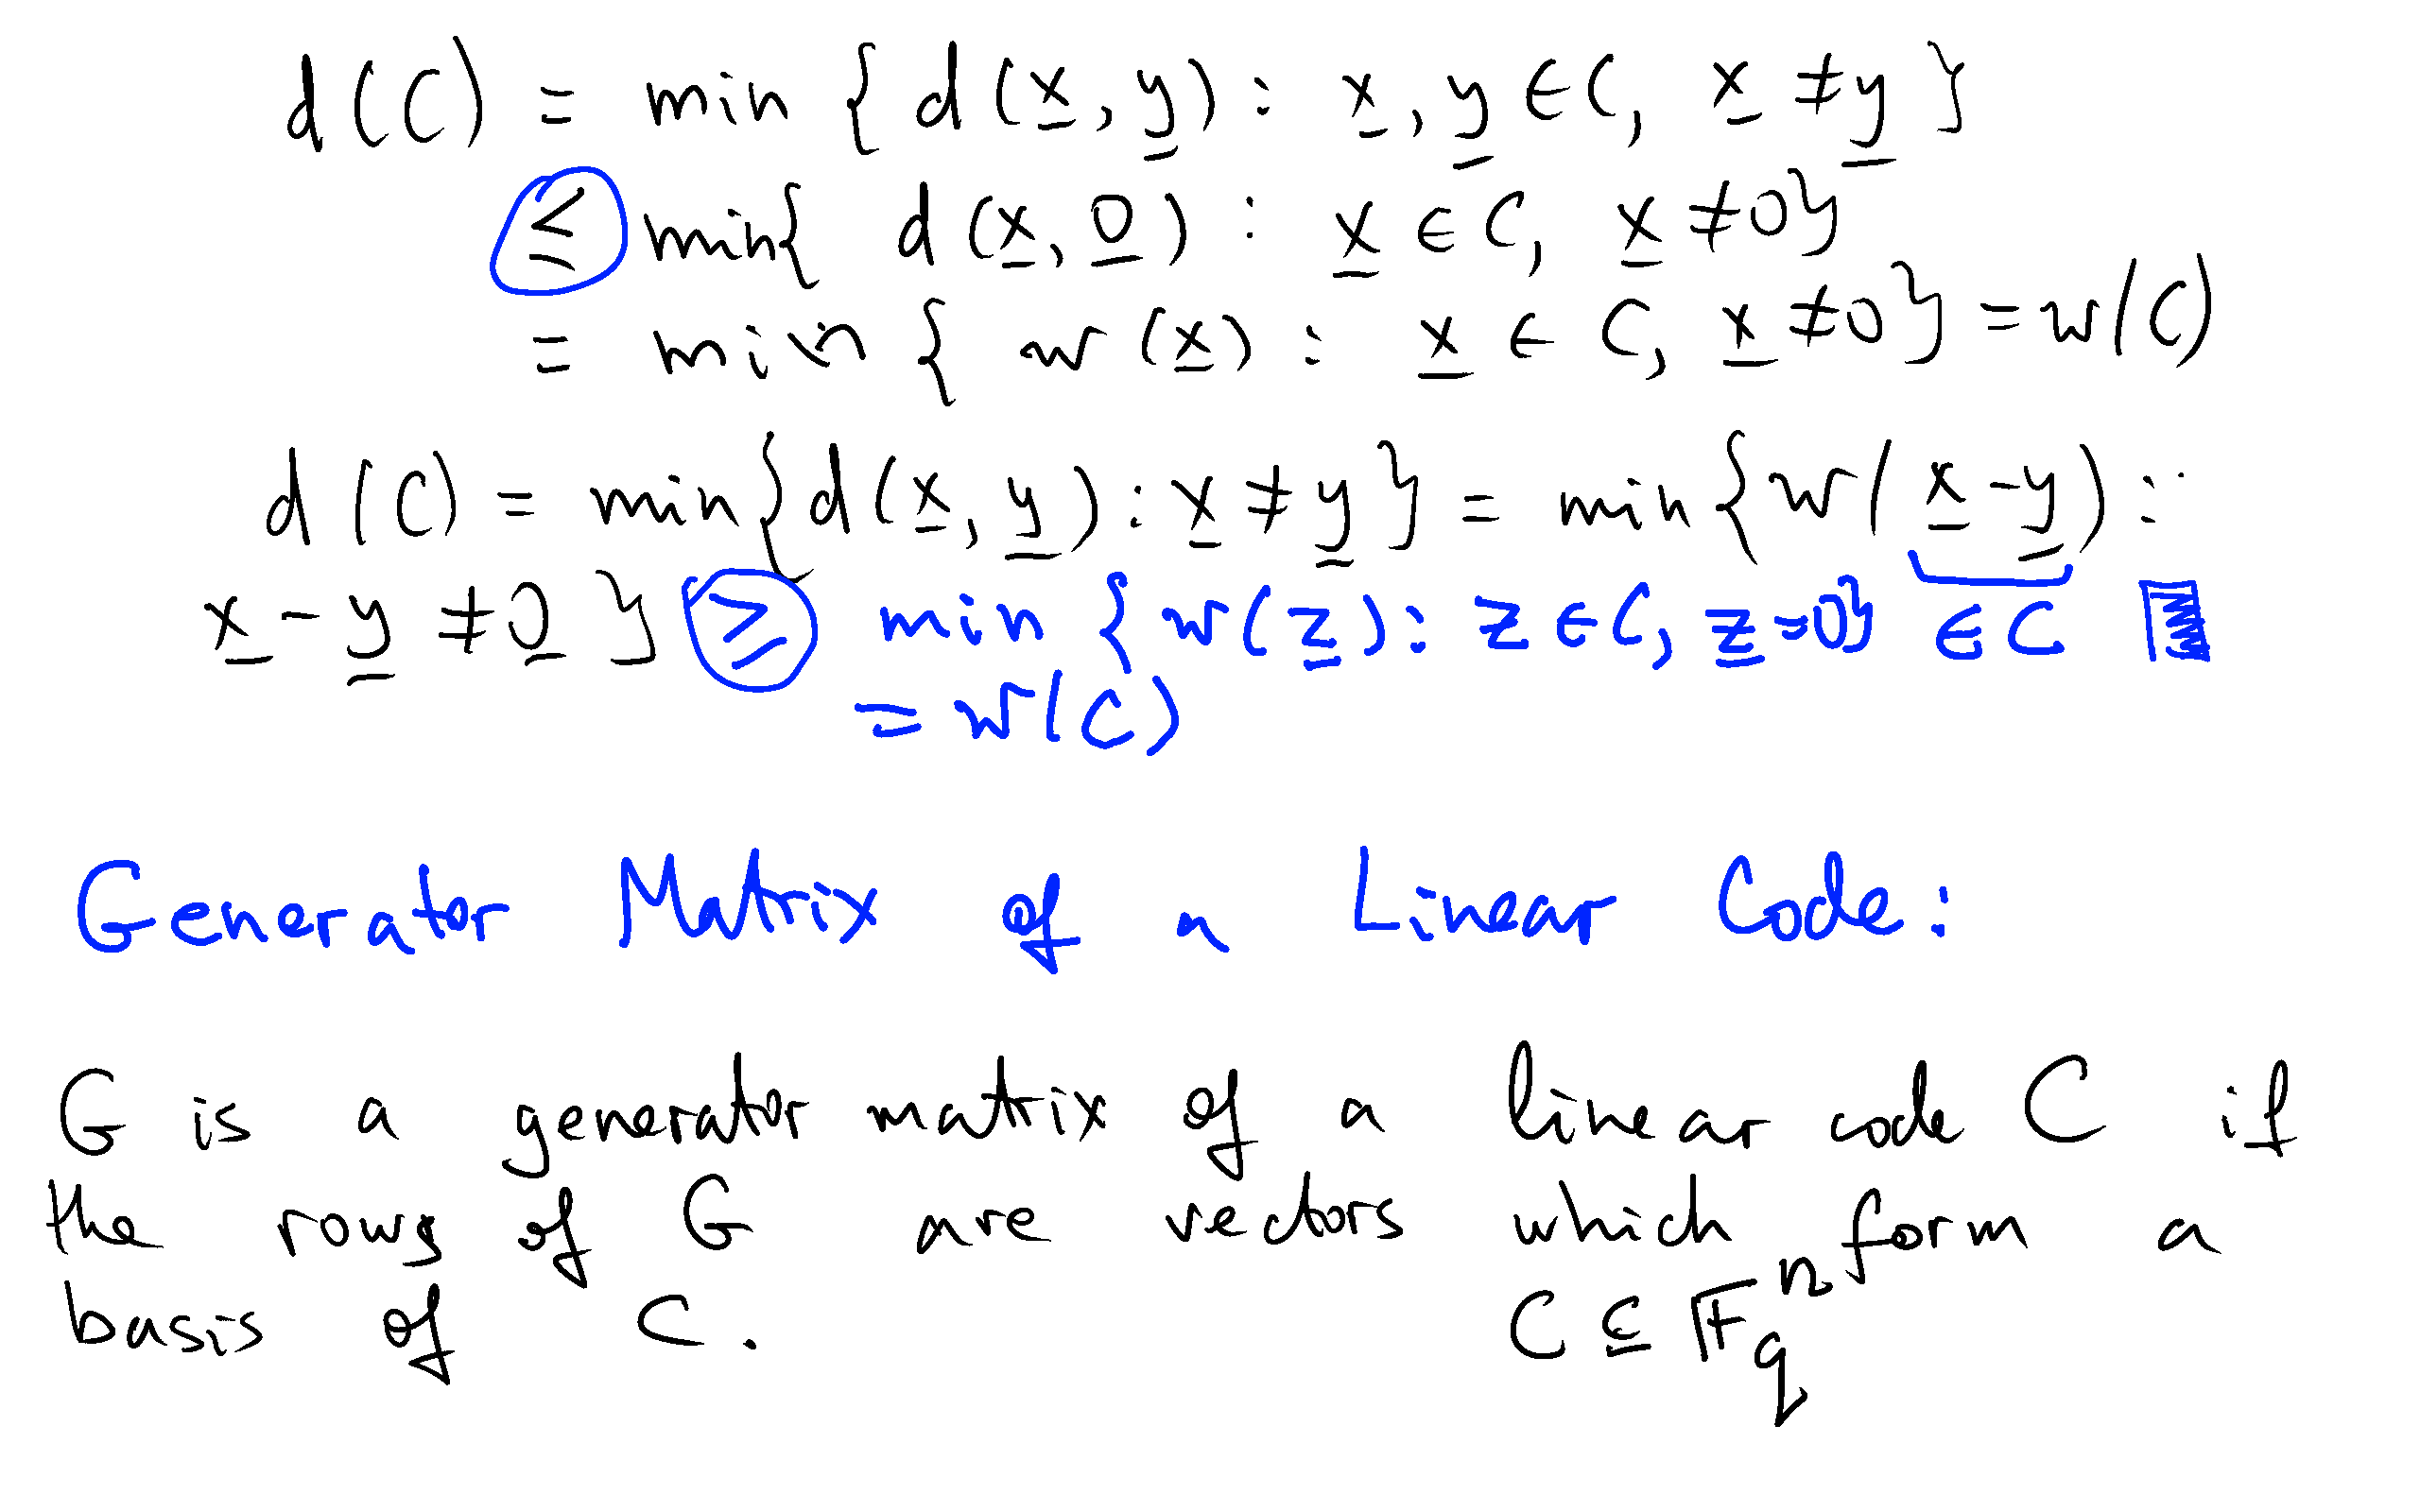 d(C) = min { d(x̲, y̲) : x̲, y̲ ∈ C, x̲ ≠ y̲ }
≤ min{ d(x̲, 0̲) : x̲ ∈ C, x̲ ≠ 0}
= min { w(x̲) : x̲ ∈ C, x̲ ≠ 0} = w(C)
d(C) = min{d(x̲, y̲) : x̲ ≠ y̲} = min{w(x̲ - y̲) :
x̲ - y̲ ≠ 0̲ } ≥ min {w(z̲) : z ∈ C, z̲ = 0} ∈ C
= w(C)
Generator Matrix of a Linear Code:
G is a generator matrix of a linear code C if
the rows of G are vectors which form a
basis of C. C ⊆ F_q^n